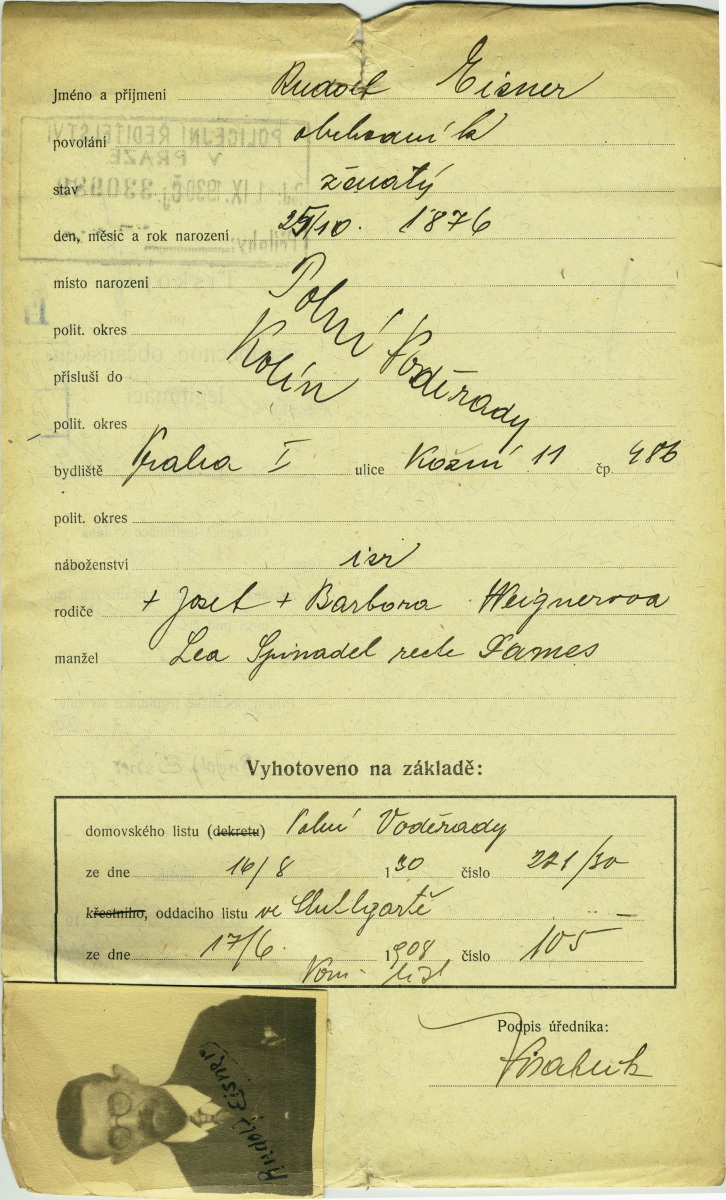 Jméno a příjmení Rudolf Eisner
povolání obchodník
stav ženatý
den, měsíc a rok narození 25/10. 1876
místo narození Polní Voděrady
polit. okres Kolín
přísluší do
polit. okres
bydliště Praha I ulice Kožní 11 čp. 486
polit. okres
náboženství isr
rodiče + Josef + Barbora Weignerova
manžel Lea Spinadel recte James
Vyhotoveno na základě:
domovského listu (dekretu) Polní Voděrady
ze dne 16/8 130 číslo 221/30
křestního, oddacího listu ve Stuttgartě
ze dne 17/6. 1908 číslo 105
Dom. list
Podpis úředníka:
Rudolf Eisner
POLICEJNÍ ŘEDITELSTVÍ
V PRAZE
1. IX. 1939
Přílohy: